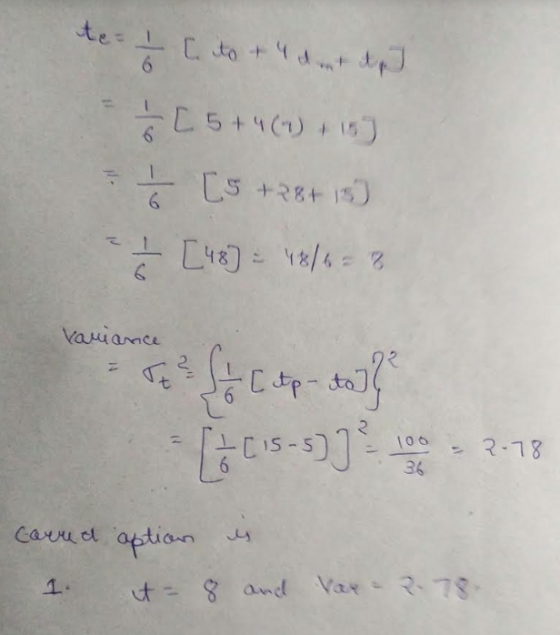 te = 1/6 [ to + 4dm + dp]
= 1/6 [ 5 + 4(7) + 15]
= 1/6 [5 + 28 + 15]
= 1/6 [48] = 48/6 = 8
Variance
= σt² = {1/6 [tp - to]}²
= [1/6 [15-5)]² = 100/36 = 2.78
option is
1. t = 8 and Var = 2.78.